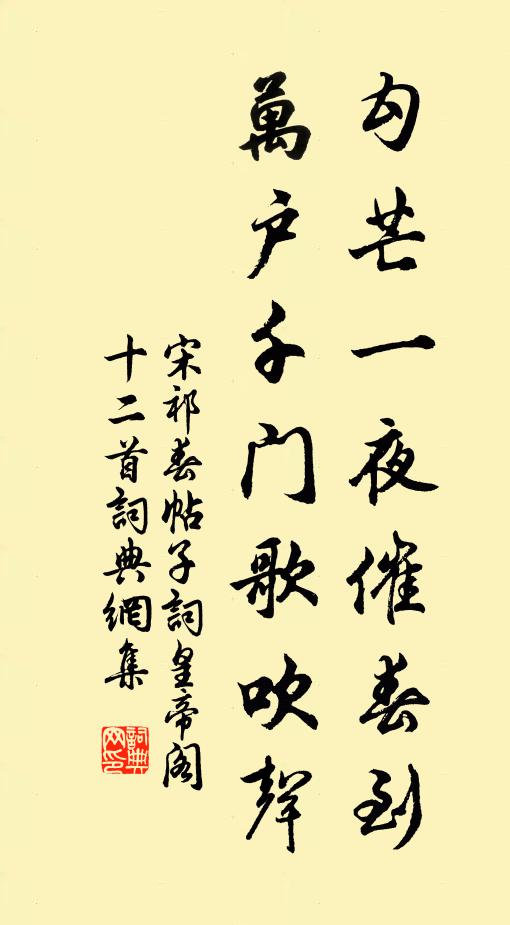 勾芒一夜催春到
萬户千门歌吹聲
宋祁春帖子詞皇帝阁
十二首詞典網集
詞典
网印